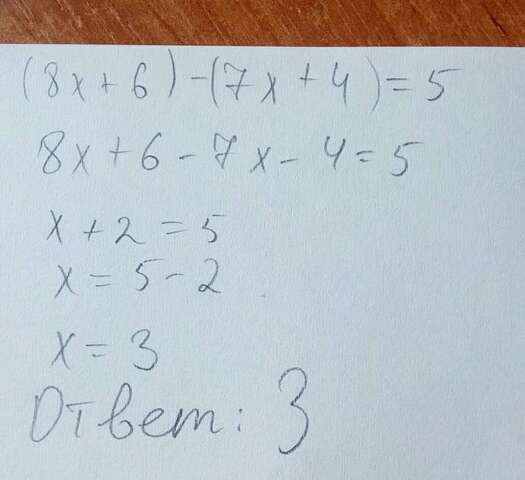 (8x+6)-(7x+4)=5
8x+6-7x-4=5
x+2=5
x=5-2
x=3
Ответ: 3